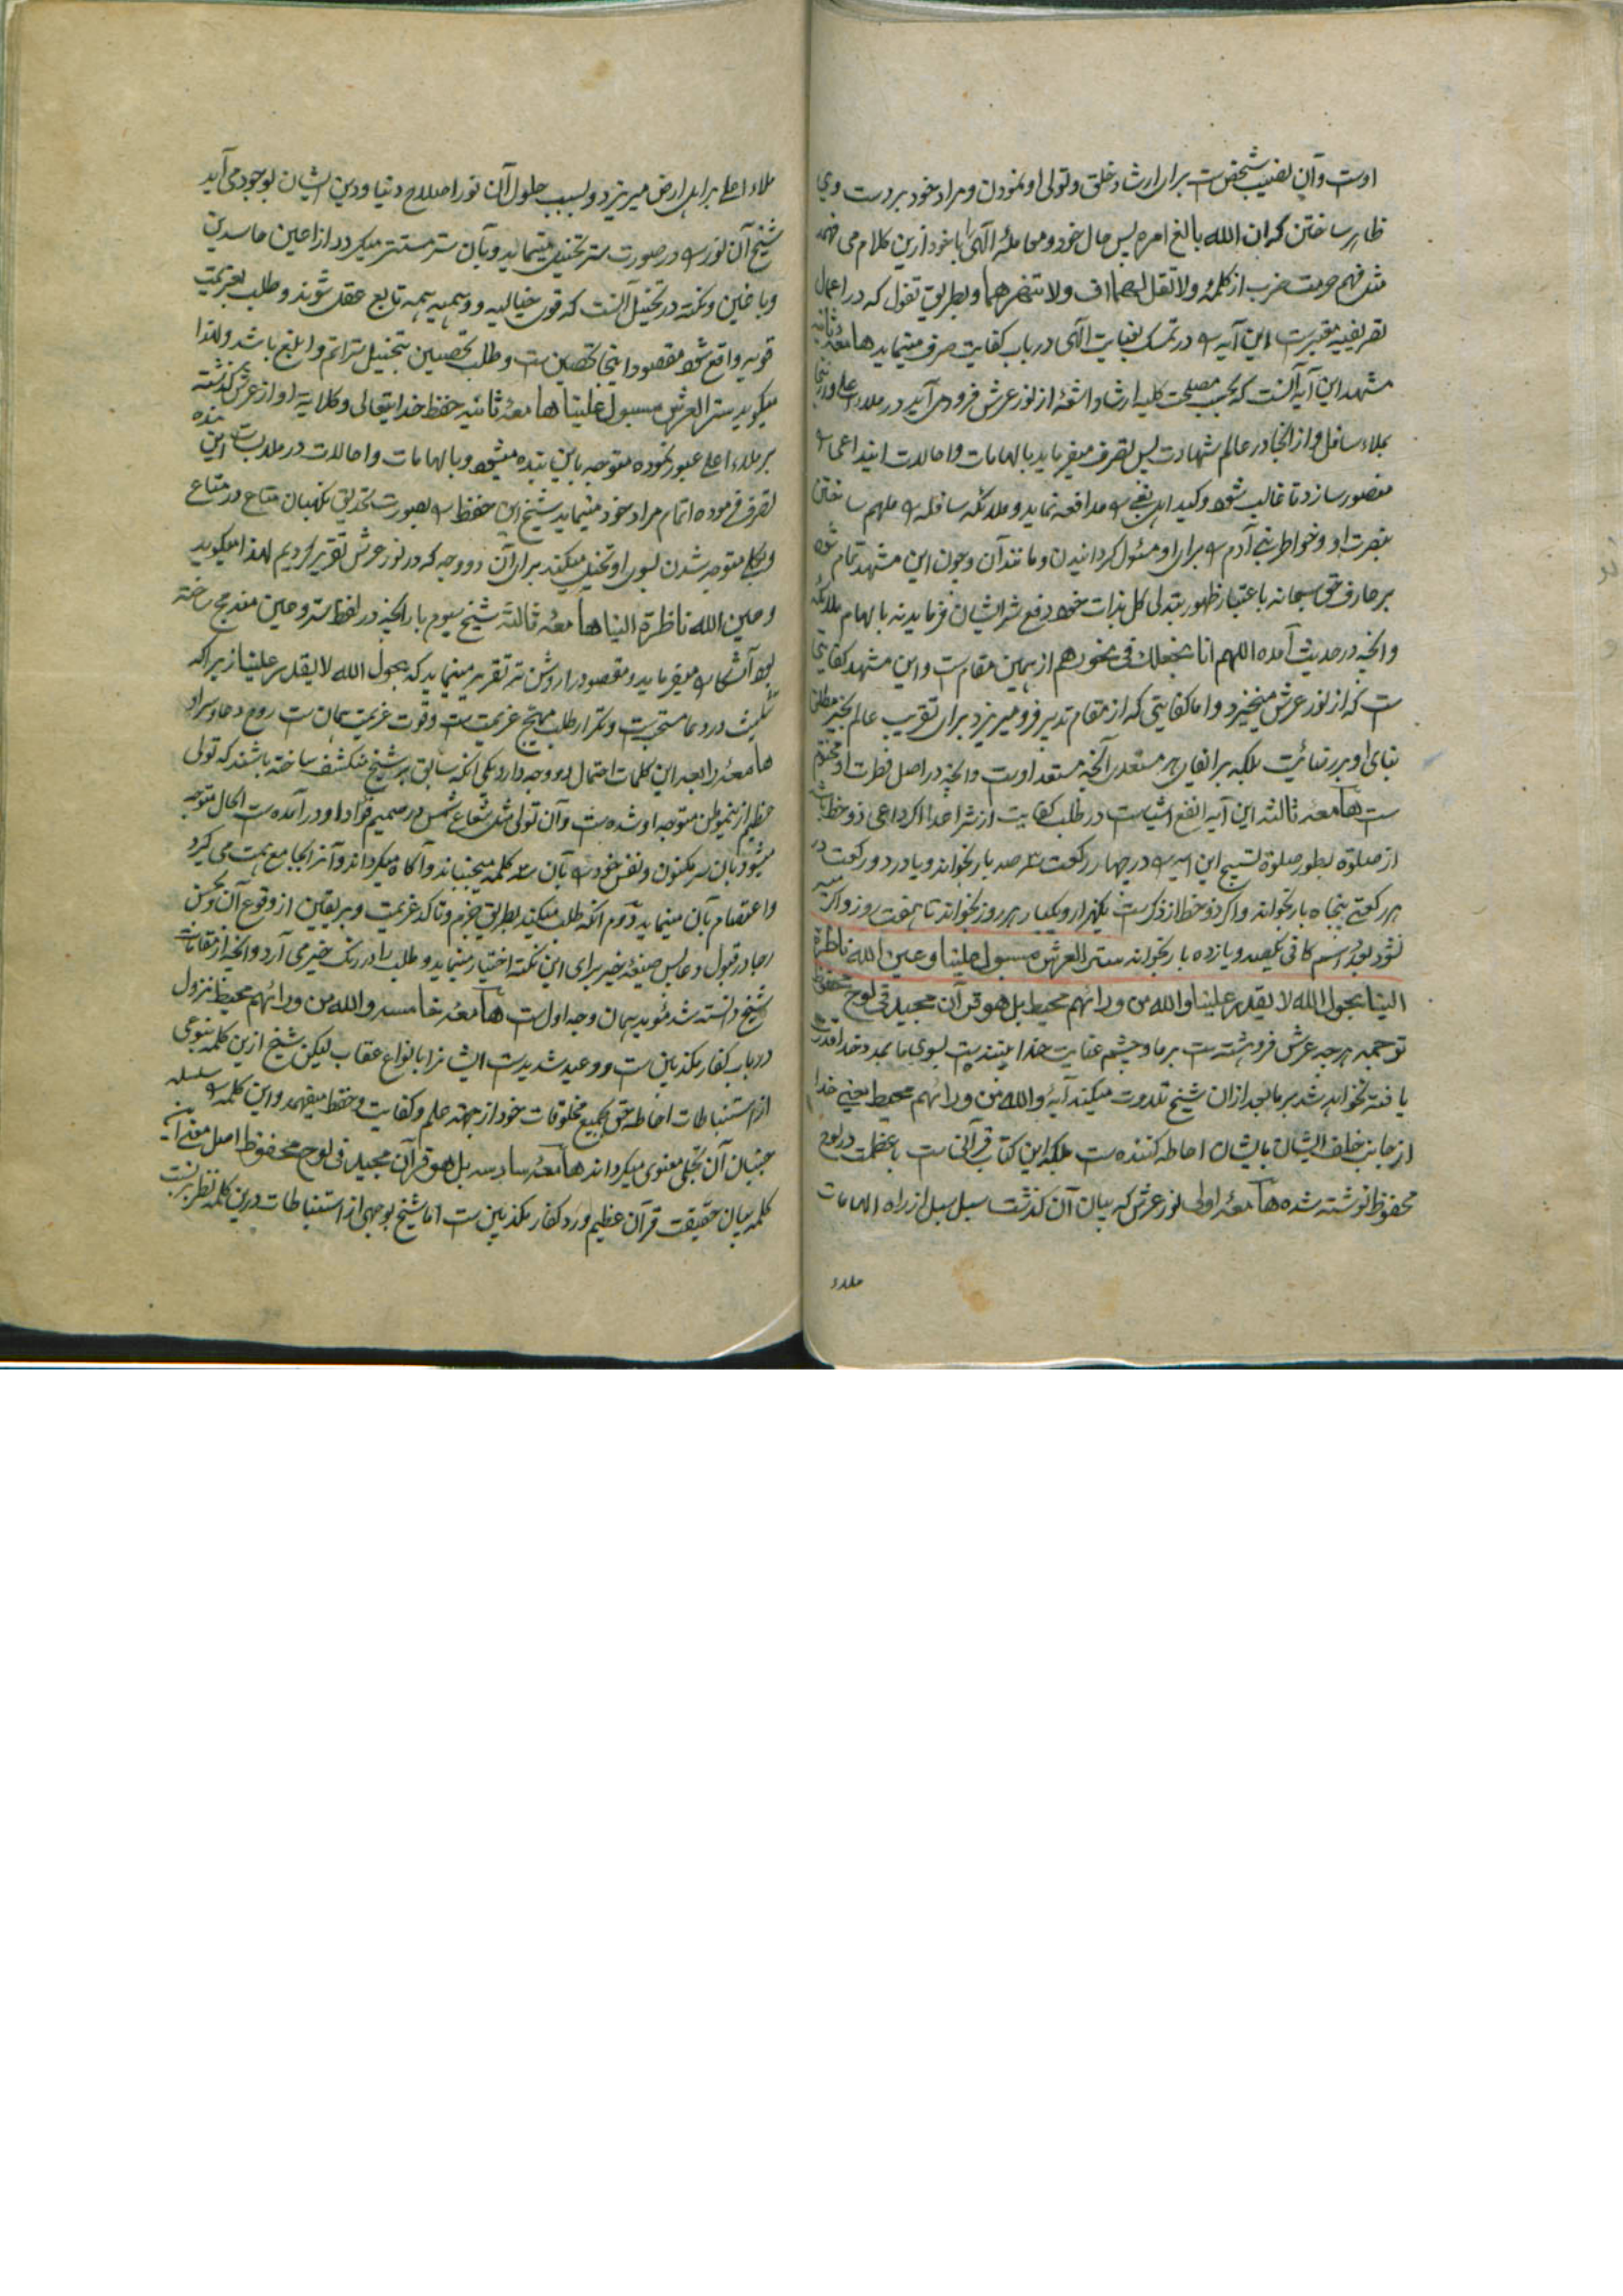 اوست و آن نصب شخص ست برای ارشاد خلق و تولی او نمودن و مراد خود بر دست وی
ظاهر ساختن که ان الله بالغ امره پس حال خود و معامله الهی را با خود ازین کلام می فهمد
مثل فهم حرمت ضرب از کلمه ولا تقل لهما اف ولا تنهرهما و بطریق تفول که در اعمال
تصریفیه معتبرست این آیه را در تمسک بعنایت الهی در باب کفایت صرف مینماید هامعه ثانیه
مشهد این آیه آنست که بحسب مصلحت کلیه ارشاد اشعه از نور عرش فرود می آید در ملاء اعلی و از آنجا
بملاء سافل و از آنجا در عالم شهادت پس تصرف میفرماید بالهامات و احالات
منصور سازد تا غالب شود و کید اهل بغی را مدافعه نماید و ملائکه سافله را ملهم ساختن
بنصرت او و خواطر بنی آدم را برای او مسئول گردانیدن و مانند آن و چون این مشهد تمام شود
بر عارف حق سبحانه باعتبار ظهور بتدلی کل بذات خود دفع شر ایشان فرماید نه بالهام ملائکه
و آنچه در حدیث آمده اللهم انا نجعلک فی نحورهم از همین مقام ست و این مشهد کفایتی
ست که از نور عرش میخیزد و اما کفایتی که از مقام تدبیر فرو میریزد برای تقریب عالم بخیر مطلق
بنای او بر رتبه نیست بلکه بر ایفای هر مستعد آنچه مستعد اوست و آنچه در اصل فطرت او مختوم
ست هامعه ثالثه این آیه انفع اشیاست در طلب کفایت از شر اعدا اگر داعی ذو حظ باشد
از صلوة بطور صلوة تسبیح این آیه را در چهار رکعت سه صد بار بخواند و یا در دو رکعت در
هر رکعتی پنجاه بار بخواند و اگر ذو حظ از ذکرست یکهزار و یکبار هر روز بخواند تا هفت روز و اگر
نشود بعد اسم کافی یکصد و یازده بار بخواند ستر العرش مسبول علینا و عین الله ناظرة
الینا بحول الله لا یقدر علینا والله من ورائهم محیط بل هو قرآن مجید فی لوح محفوظ
ترجمه پرده عرش فروهشته ست بر ما و چشم عنایت خدا بیننده است بسوی ما بمدد خدا قدرت
یافته نخواهد شد بر ما بعد ازان شیخ تلاوت میکند آیه والله من ورائهم محیط یعنی خدا
از جانب خلف ایشان بایشان احاطه کننده ست بلکه این کتاب قرآنی ست با عظمت در لوح
محفوظ نوشته شده هامعه اولی نور عرش که بیان آن گذشت سیل سیل از راه الهامات
ملاء
ملاء اعلی بر اهل ارض میریزد و بسبب حلول آن نور اصلاح دنیا و دین ایشان بوجود می آید
شیخ آن نور را در صورت ستر تخیل مینماید و بآن ستر مستتر میگردد از اعین حاسدین
و باغین و نکته در تخییل آنست که قوی خیالیه و وهمیه همه تابع عقل شوند و طلب بعزیمت
قویه واقع شود مقصود اینجا تحصین ست و طلب تحصین بتخییل ستر اتم و ابلغ باشد و لهذا
میگوید ستر العرش مسبول علینا هامعه ثانیه حفظ خدایتعالی و کلایة او از عرش گذشته
بر ملاء اعلی عبور نموده متوجه باین بنده میشود و بالهامات و احالات در ملابست این بنده
تصرف فرموده اتمام مراد خود مینماید شیخ این حفظ را بصورت تحدیق نگهبان متاع در متاع
و بکلی متوجه شدن بسوی او تخیل میکند برای آن دو وجه که در نور عرش تقریر کردیم لهذا میگوید
و عین الله ناظرة الینا هامعه ثالثه شیخ سیوم بار آنچه در لفظ ستر و عین مندمج ساخته
بود آشکارا میفرماید و مقصود را روشن تر تقریر مینماید که بحول الله لا یقدر علینا زیرا که
تثلیث در دعا مستحب ست و تکرار طلب مهیج عزیمت ست و قوت عزیمت همان ست روح دعا و سر او
هامعه رابعه این کلمات احتمال دو وجه دارد یکی آنکه سابق بر شیخ منکشف ساخته باشند که تولی
عظیم ازین موطن متوجه او شده ست و آن تولی مثل شعاع شمس در صمیم فؤاد او در آمده ست الحال متوجه
میشود بآن سر مکنون و نفس خود را بآن سه کلمه میجنباند و آگاه میگرداند و آنرا بجامع همت می گیرد
و اعتصام بآن مینماید دوم آنکه طلب میکند بطریق جزم و تأکد عزیمت و بر یقین از وقوع آن و حسن
رجا در قبول دعا پس صیغه خبر برای این نکته اختیار مینماید و طلب را در رنگ خبر می آرد و آنچه از مقامات
شیخ دانسته شد مؤید همان وجه اول ست هامعه خامسه والله من ورائهم محیط نزول
در باب کفار مکذبین ست و وعید شدیدست ایشانرا بانواع عقاب لیکن شیخ ازین کلمه بنوعی
از استنباطات احاطه حق بجمیع مخلوقات خود از جهته علم و کفایت و حفظ میفهمد و این کلمه را سلسله
جنبان آن تجلی معنوی میگرداند هامعه سادسه بل هو قرآن مجید فی لوح محفوظ اصل معنی این
کلمه بیان حقیقت قرآن عظیم و رد کفار مکذبین ست اما شیخ بوجهی از استنباطات درین کلمه نظر